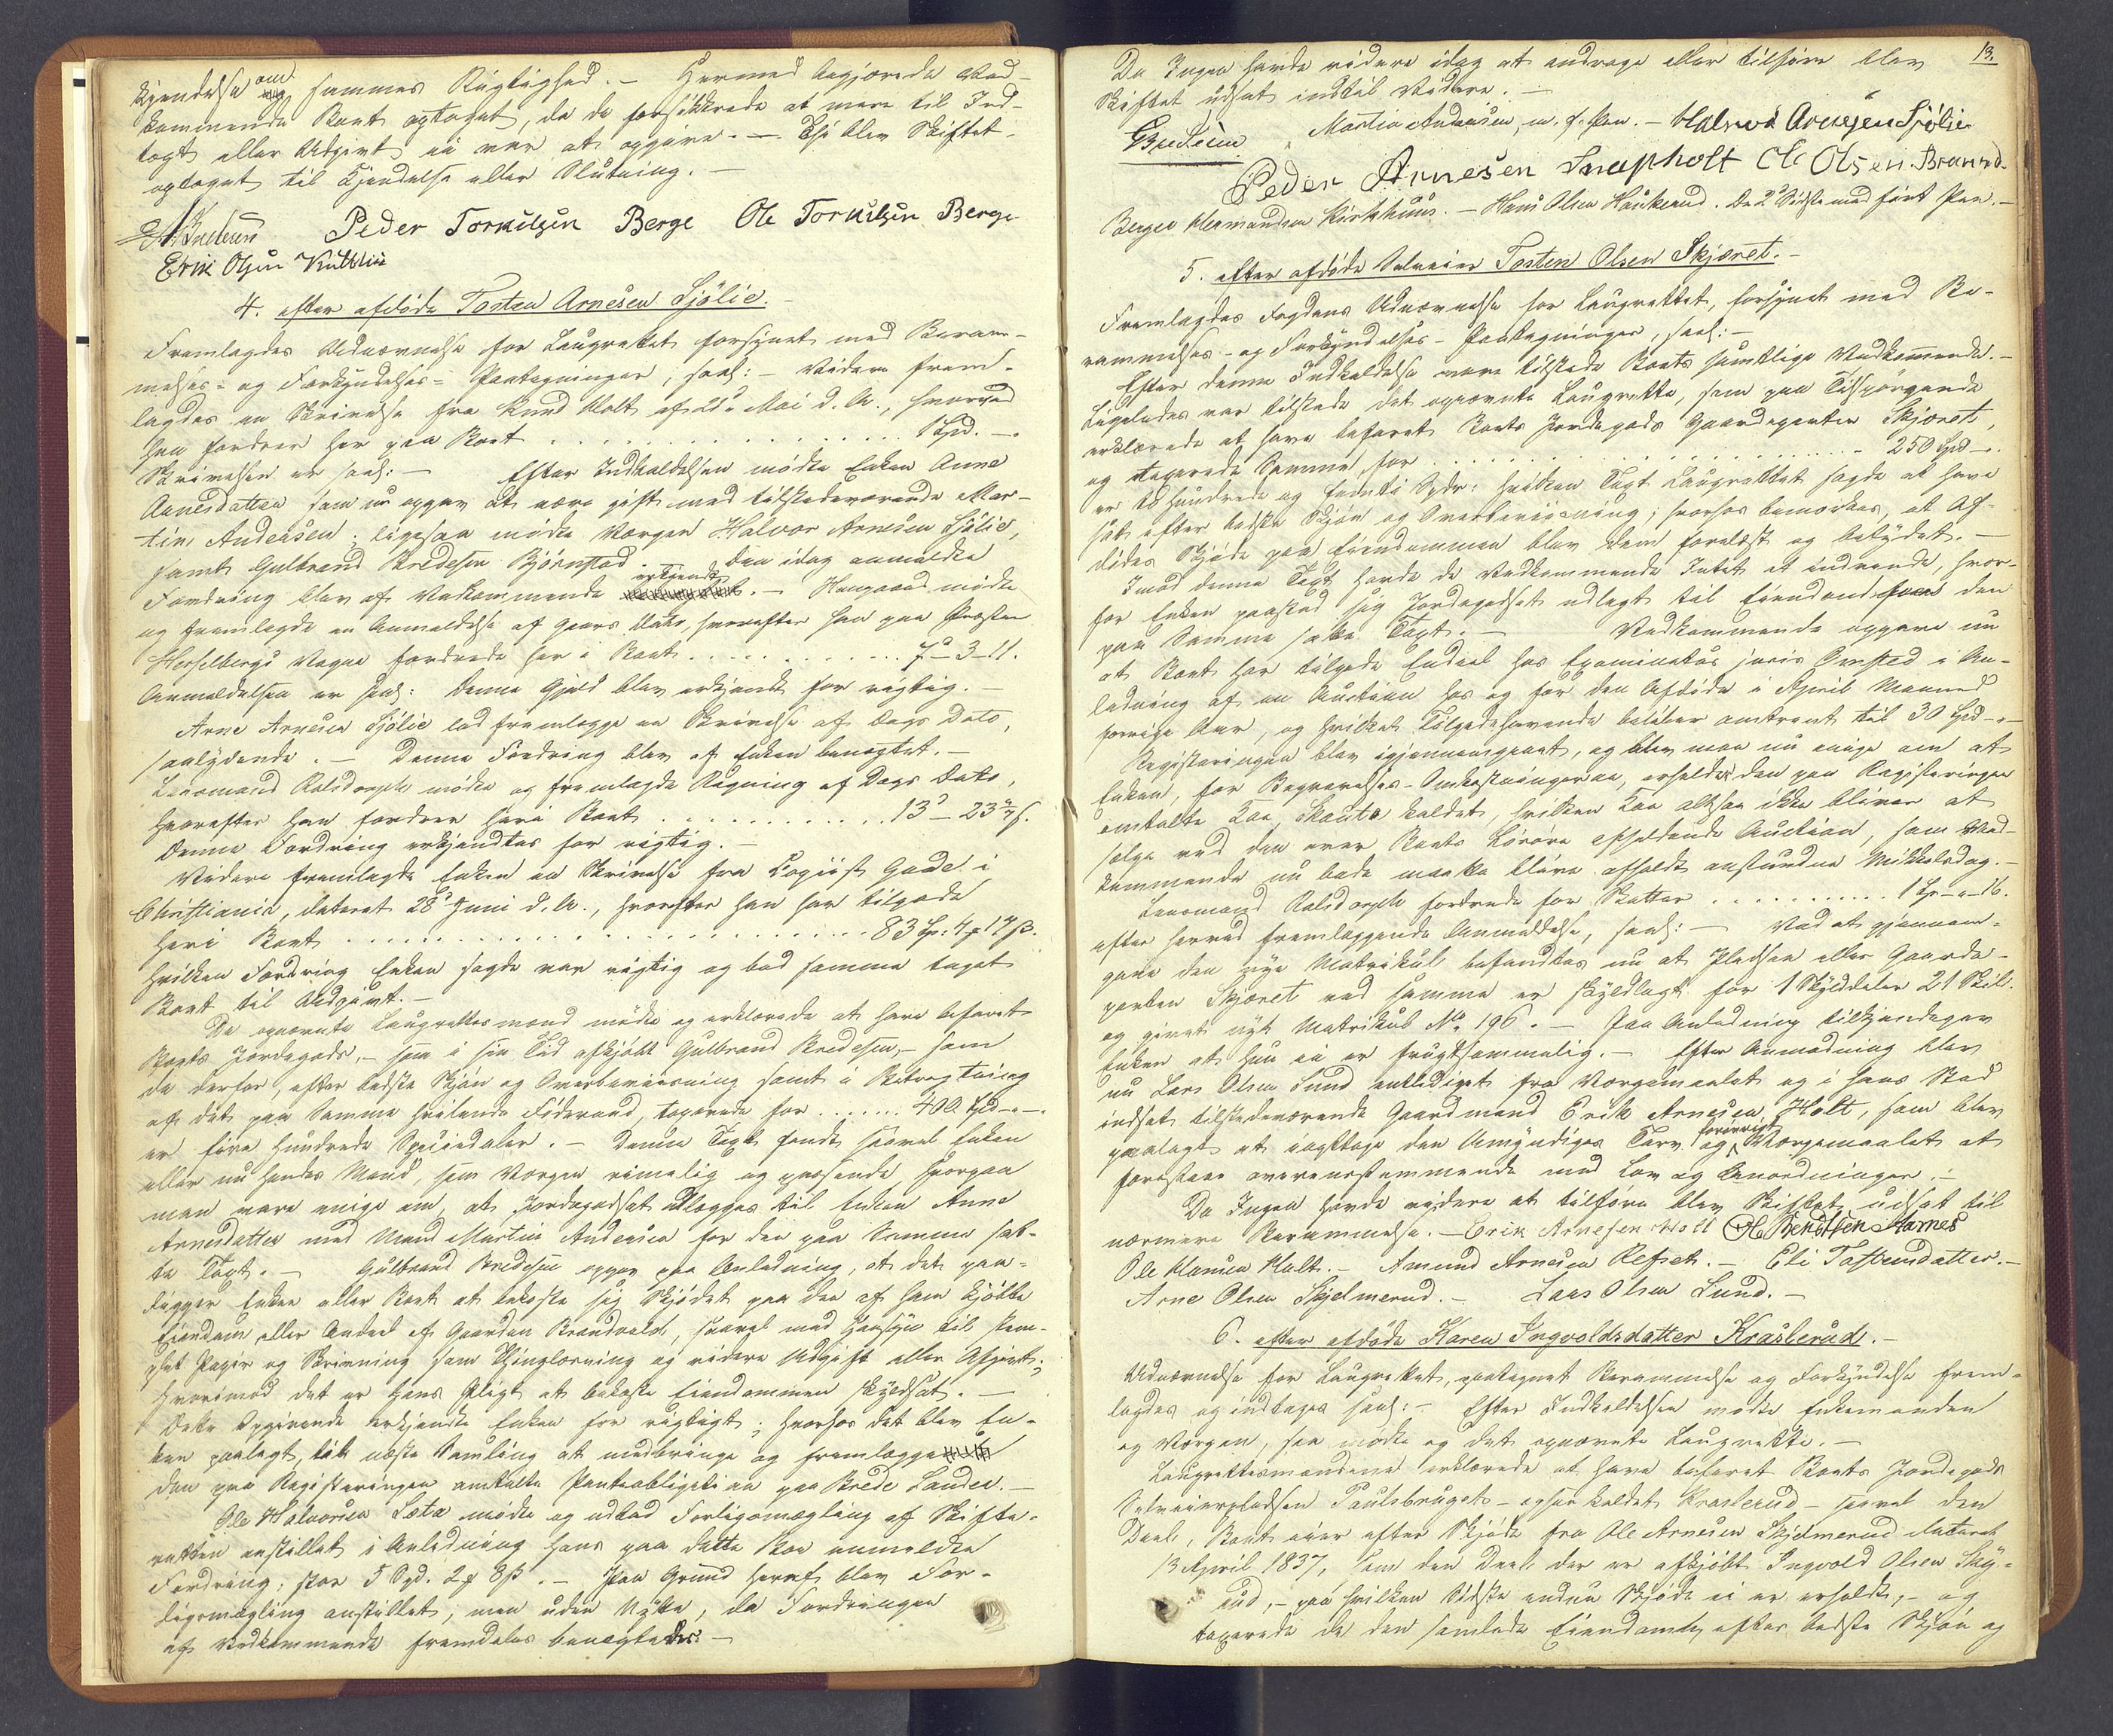 Kjendelse om sammes Rigtighed. – Hermed begjærede Ved-
kommende Boet optaget, da de forsikkrede at mere til Ind-
tægt eller Udgivt ei var at opgive. – Thi blev Skiftet
optaget til Kjendelse eller Slutning. –
Peder Torkilsen Berge Ole Torkilsen Berge
Erik Olsen
4. efter afdøde Torsten Arnesen Sjölie. –
Fremlagdes Udnævnelse for Laugrettet forsynet med Beram-
melses- og Forkyndelses- Paategninger, saal: – Videre frem-
lagdes en Skrivelse fra Knud Holt af 21de Mai d. A., hvorved
han fordrer her paa Boet . . . . . . . . . . 1 Spd. –
Skrivelsen er saal: – Efter Indkaldelsen mødte Enken Anne
Arnesdatter som nu opgav at være gift med tilstedeværende Mar-
tin Andersen; ligesaa mødte Værgen Halvor Arnesen Sjölie,
samt Gulbrand Bredesen Björnstad. – Den idag anmeldte
Fordring blev af Vedkommende erkjendt. – Haagaard mødte
og fremlagde en Anmeldelse af Gaars Dato, hvorefter han paa Præsten
Hesselbergs Vegne fordrede her i Boet . . . . . . . . 7 – 3 – 11.
Anmeldelsen er saal: Denne Gjeld blev erkjendt for rigtig. –
Arne Arnesen Sjölie lod fremlægge en Skrivelse af Dags Dato,
saalydende. – Denne Fordring blev af Enken benægtet. –
Lensmand Rolsdorph mødte og fremlagde Regning af Dags Dato,
hvorefter han fordrer her i Boet . . . . . . . . . . 13 – 23 ß.
Denne Fordring erkjendtes for rigtig. –
Videre fremlagde Enken en Skrivelse fra Copiist Gade i
Christiania, dateret 28 Juni d. A., hvorefter han har tilgode
her i Boet . . . . . . . . . . . . . . . . . . 83 Sp: 4 # 17 ß.
hvilken Fordring Enken sagde var rigtig og bad samme taget
Boet til Udgivt. –
De opnævnte Laugrettesmænd mødte og erklærede at have befaret
Boets Jordegods, – som i sin Tid afkjøbt Gulbrand Bredesen, – som
de derfor, efter bedste Skjøn og Overbeviisning samt i Betragtning
af det paa Samme hvilende Föderaad, taxerede for . . . . . . . 400 Spd – " –
er fire Hundrede Speciedaler. – Denne Taxt fandt saavel Enken
eller nu hendes Mand, som Værgen rimelig og passende, hvorpaa
man vare enige om, at Jordegodset udlægges til Enken Anne
Arnesdatter med Mand Martin Andersen for den paa Samme sat-
te Taxt. – Gulbrand Bredesen opgav paa Anledning, at det paa-
ligger Enken eller Boet at bekoste sig Skjødet paa den af ham kjøbte
Eiendom eller Andeel af Gaarden Brandvold, saavel med Hensyn til stem-
plet Papir og Skrivning som Thinglæsning og videre Udgift eller Afgivt;
hvorimod det er hans Pligt at bekoste Eiendommen skyldsat. –
Dette Opgivende erkjendte Enken for rigtigt; hvorhos det blev En-
ken paalagt, til næste Samling at medbringe og fremlægge
den paa Registeringen omtalte Panteobligation paa Brede Lander. –
Ole Halvorsen Sæta mødte og udbad Forligsmægling af Skifte-
retten anstillet i Anledning hans paa dette Boe anmeldte
Fordring; stor 5 Spd. 2 # 8 ß. – Paa Grund heraf blev For-
ligsmægling anstillet, men uden Nytte, da Fordringen
af Vedkommende fremdeles benægtedes. –
13.
Da Ingen havde videre idag at andrage eller tilføre blev
Skiftet udsat indtil Videre. –
Martin Andersen, m. f. Pen. – Halvod Arnesen Sjölie
Peder Arnesen Snapholt Ole Olsen Brannd
Berger Hermandsen Kirkehuus. – Hans Olsen Haukerud. De 2de Sidste med ført Pen. –
5. efter afdøde Selveier Tosten Olsen Skjæret. –
Fremlagdes Fogdens Udnævnelse for Laugrettet, forsynet med Be-
rammelses- og Forkyndelses- Paategninger, saal: –
Efter denne Indkaldelse vare tilstede Boets samtlige Vedkommende. –
Ligeledes var tilstede det opnævnte Laugrette, som paa Tilspørgende
erklærede at have befaret Boets Jordegods Gaardeparten Skjæret,
og taxerede Samme for . . . . . . . . . . . . . . . 250 Spd – .
er to Hundrede og femti Spdr: hvilken Taxt Laugrettet sagde at have
sat efter bedste Skjøn og Overbeviisning; hvorhos bemærkes, at Af-
dødes Skjøde paa Eiendommen blev dem forelæst og betydet. –
Imod denne Taxt havde de Vedkommende Intet at indvende, hvor-
for Enken paastod sig Jordegodset udlagt til Eiendom for den
paa Samme satte Taxt. – Vedkommende opgave nu
at Boet har tilgode Endeel hos Examinatus juris Omsted i An-
ledning af en Auction hos og for den Afdøde i April Maaned
forrige Aar, og hvilket Tilgodehavende beløber omtrent til 30 Spd – " –
Registeringen blev igjennemgaaet, og blev man nu enige om at
Enken, for Begravelses-Omkostningerne, erholder den paa Registeringen
omtalte Koe, Skaute kaldet, hvilken Koe altsaa ikke bliver at
sælge ved den over Boets Løsøre afholdende Auction, som Ved-
kommende nu bade maatte blive afholdt anstundne Mikkelsdag. –
Lensmand Rolsdorph fordrede for Skatter . . . . . . . . . . 1 Sp – " – 16.
efter herved fremlæggende Anmeldelse, saal: – Ved at gjennem-
gaae den nye Matrikul befandtes nu at Pladsen eller Gaarde-
parten Skjæret ved samme er skyldlagt for 1 Skylddaler 21 Skil.
og givet nyt Matrikul No 196. – Paa Anledning tilkjendegav
Enken at hun ei er frugtsommelig. – Efter Anmodning blev
nu Lars Olsen Lund entlediget fra Værgemaalet og i hans Sted
indsat tilstedeværende Gaardmand Erik Arnesen Holt, som blev
paalagt at iagttage den Umyndiges Tarv og forøvrigt Værgemaalet at
forestaae overensstemmende med Lov og Anordninger. –
Da Ingen havde videre at tilføre blev Skiftet udsat til
nærmere Berammelse. – Erik Arnesen Holt Ole Bendtsen Harnes
Ole Hansen Holt. – Amund Arnesen Refset. – Eli Tostensdatter. –
Arne Olsen Skjelmerud. – Lars Olsen Lund. –
6. efter afdøde Karen Ingvoldsdatter Kraslerud. –
Udnævnelse for Laugrettet, paategnet Berammelse og Forkyndelse frem-
lagdes og indtages saal: – Efter Indkaldelsen mødte Enkemanden
og Værgen, saa mødte og det opnævnte Laugrette. –
Laugrettesmændene erklærede at have befaret Boets Jordegods
Selveierpladsen Paulsbruget – ogsaa kaldet Kraslerud – saavel den
Deel, Boet eier efter Skjøde fra Ole Arnesen Skjelmerud dateret
13 April 1837, som den Deel der er afkjøbt Ingvold Olsen Sky-
rud, – paa hvilken Sidste endnu Skjøde ei er erholdt, – og
taxerede de den samlede Eiendom, efter bedste Skjøn og